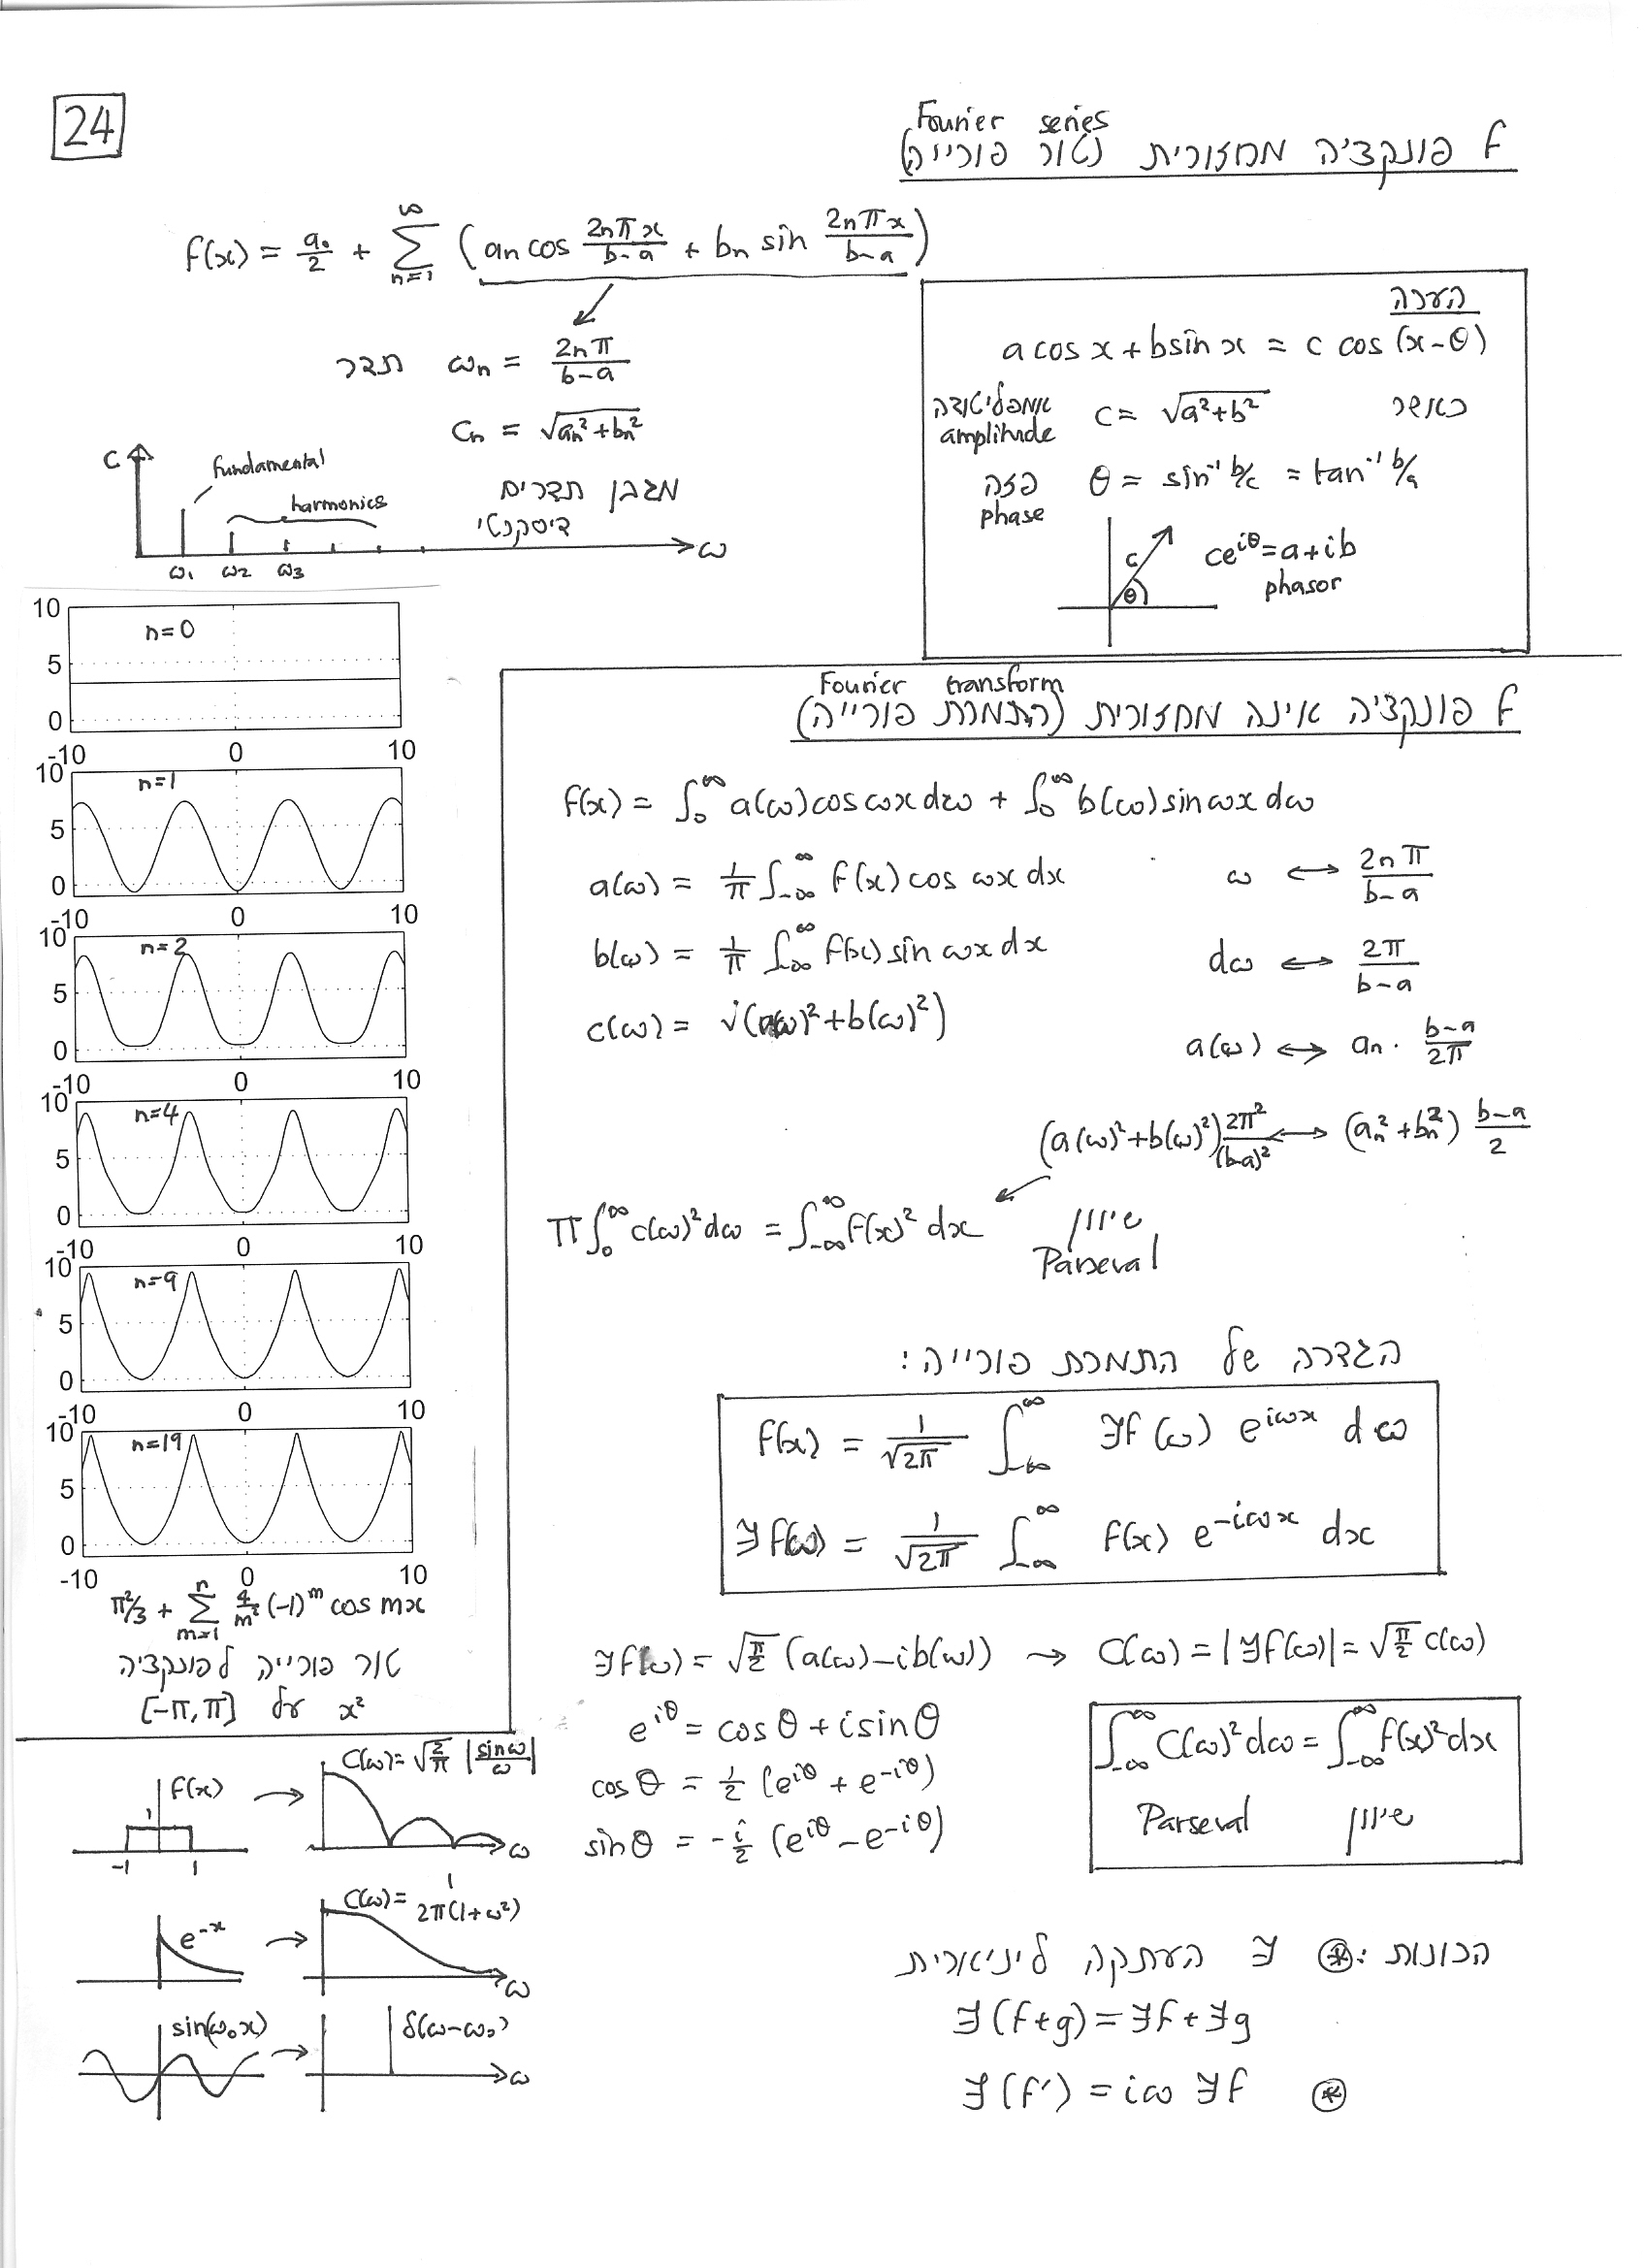 24
Fourier series
f פונקציה מחזורית (טור פורייה)
f(x) = a₀/2 + Σ_{n=1}^{∞} (an cos 2nπx/b-a + bn sin 2nπx/b-a)
תדר ωn = 2nπ/b-a
Cn = √(an²+bn²)
C
fundamental
harmonics
מגבן תדרים
דיסקרטי
ω₁ ω₂ ω₃
ω
הערה
a cos x + b sin x = c cos (x-θ)
כאשר c = √(a²+b²) אמפליטודה
amplitude
θ = sin⁻¹ b/c = tan⁻¹ b/a פזה
phase
c
θ
ce^{iθ} = a+ib
phasor
10
n=0
5
0
-10 0 10
10
n=1
5
0
-10 0 10
10
n=2
5
0
-10 0 10
10
n=4
5
0
-10 0 10
10
n=9
5
0
-10 0 10
10
n=19
5
0
-10 0 10
π²/3 + Σ_{m=1}^{n} 4/m² (-1)^m cos mx
טור פורייה לפונקציה
x² על [-π,π]
Fourier transform
f פונקציה אינה מחזורית (התמרת פורייה)
f(x) = ∫₀^∞ a(ω) cos ωx dω + ∫₀^∞ b(ω) sin ωx dω
a(ω) = 1/π ∫_{-∞}^{∞} f(x) cos ωx dx
ω ↔ 2nπ/b-a
b(ω) = 1/π ∫_{-∞}^{∞} f(x) sin ωx dx
dω ↔ 2π/b-a
c(ω) = √(a(ω)²+b(ω)²)
a(ω) ↔ an · b-a/2π
(a(ω)²+b(ω)²) 2π²/(b-a)² ↔ (an²+bn²) b-a/2
π ∫₀^∞ c(ω)² dω = ∫_{-∞}^{∞} f(x)² dx שיוון
Parseval
הגדרה של התמרת פורייה:
f(x) = 1/√2π ∫_{-∞}^{∞} ℱf(ω) e^{iωx} dω
ℱf(ω) = 1/√2π ∫_{-∞}^{∞} f(x) e^{-iωx} dx
ℱf(ω) = √(π/2) (a(ω)-ib(ω)) → C(ω) = |ℱf(ω)| = √(π/2) c(ω)
e^{iθ} = cosθ + i sinθ
cosθ = 1/2 (e^{iθ} + e^{-iθ})
sinθ = -i/2 (e^{iθ} - e^{-iθ})
∫_{-∞}^{∞} C(ω)² dω = ∫_{-∞}^{∞} f(x)² dx
שיוון Parseval
f(x)
1
-1 1
C(ω) = √(2/π) |sinω/ω|
ω
e^{-x}
C(ω) = 1/2π(1+ω²)
ω
sin(ω₀x)
δ(ω-ω₀)
ω
תכונות: ⊛ ℱ העתקה ליניארית
ℱ(f+g) = ℱf + ℱg
⊛ ℱ(f') = iω ℱf